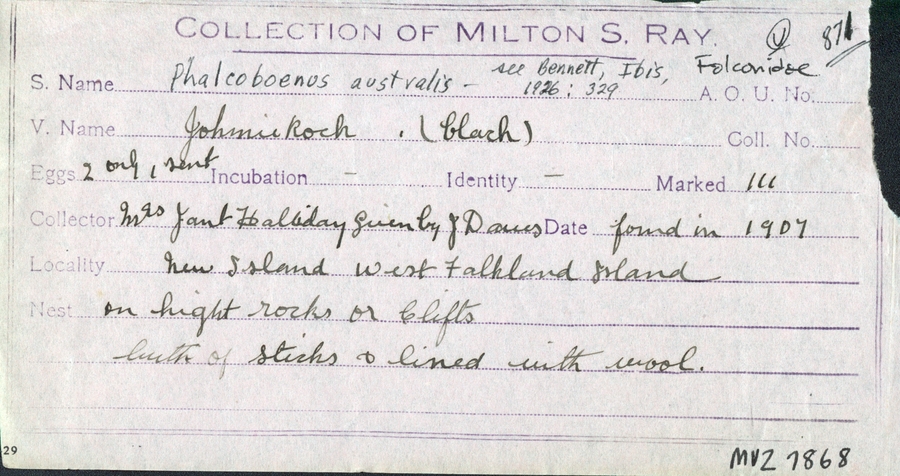 COLLECTION OF MILTON S. RAY. 871
S. Name Phalcoboenus australis - see Bennett, Ibis, 1926: 329 Falconidae A. O. U. No.
V. Name Johnnie Rock . (black) Coll. No.
Eggs 2 only 1 sent Incubation — Identity — Marked 111
Collector Mrs Halliday given by J Davis Date found in 1907
Locality New Island West Falkland Island
Nest on hight rocks or Clifts
buth of sticks & lined with wool.
29
MVZ 7868